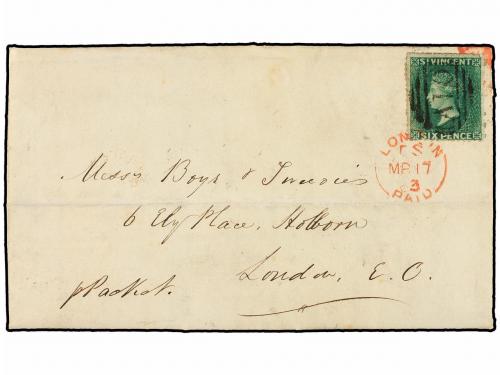 ST VINCENT
SIX PENCE
LONDON
MR 17
3
PAID
Messrs Boys & Tweedies
6 Ely Place, Holborn
London, E. C.
p Packet.